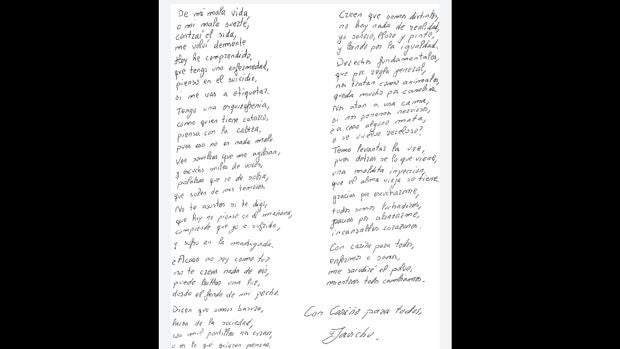 De mi mala vida
o mi mala suerte,
contraí el sida,
me volví demente
Hoy he comprendido,
que tengo una enfermedad,
pienso en el suicidio,
si me vas a etiquetar.
Tengo una esquizofrenia,
como quien tiene catarro,
piensa con la cabeza,
pues eso no es nada malo
Veo sombras que me agobian,
y escucho miles de voces,
palabras que se de sobra,
que salen de mis temores.
No te asustes si te digo,
que hoy no pienso en el mañana,
comprende que yo e sufrido,
y sufro en la madrugada.
¿Acaso no soy como tú?
no te creas nada de eso,
puede brillar una luz,
desde el fondo de mi pecho.
Dicen que somos basura,
de la sociedad,
con mil pastillas no curan,
o es lo que quieren pensar.
Creen que somos distintos,
no hay nada de realidad,
yo sonrio, lloro y pinto,
y lucho por la igualdad.
Derechos fundamentales,
que por regla general,
nos tratan como animales,
queda mucho por cambiar
Nos atan a una cama,
si nos ponemos nerviosos,
¿a caso alguno mata,
o se vuelve receloso?
Temo levantar la voz,
pues detras se lo que viene,
una maldita inyeccion,
que el alma vieja se tiene
gracias por escucharme,
todos somos luchadores,
gracias por abrazarme,
incansables corazones.
Con cariño para todos,
enfermos o sanos,
me sacudiré el polvo,
mientras todo cambiamos.
Con Cariño para todos,